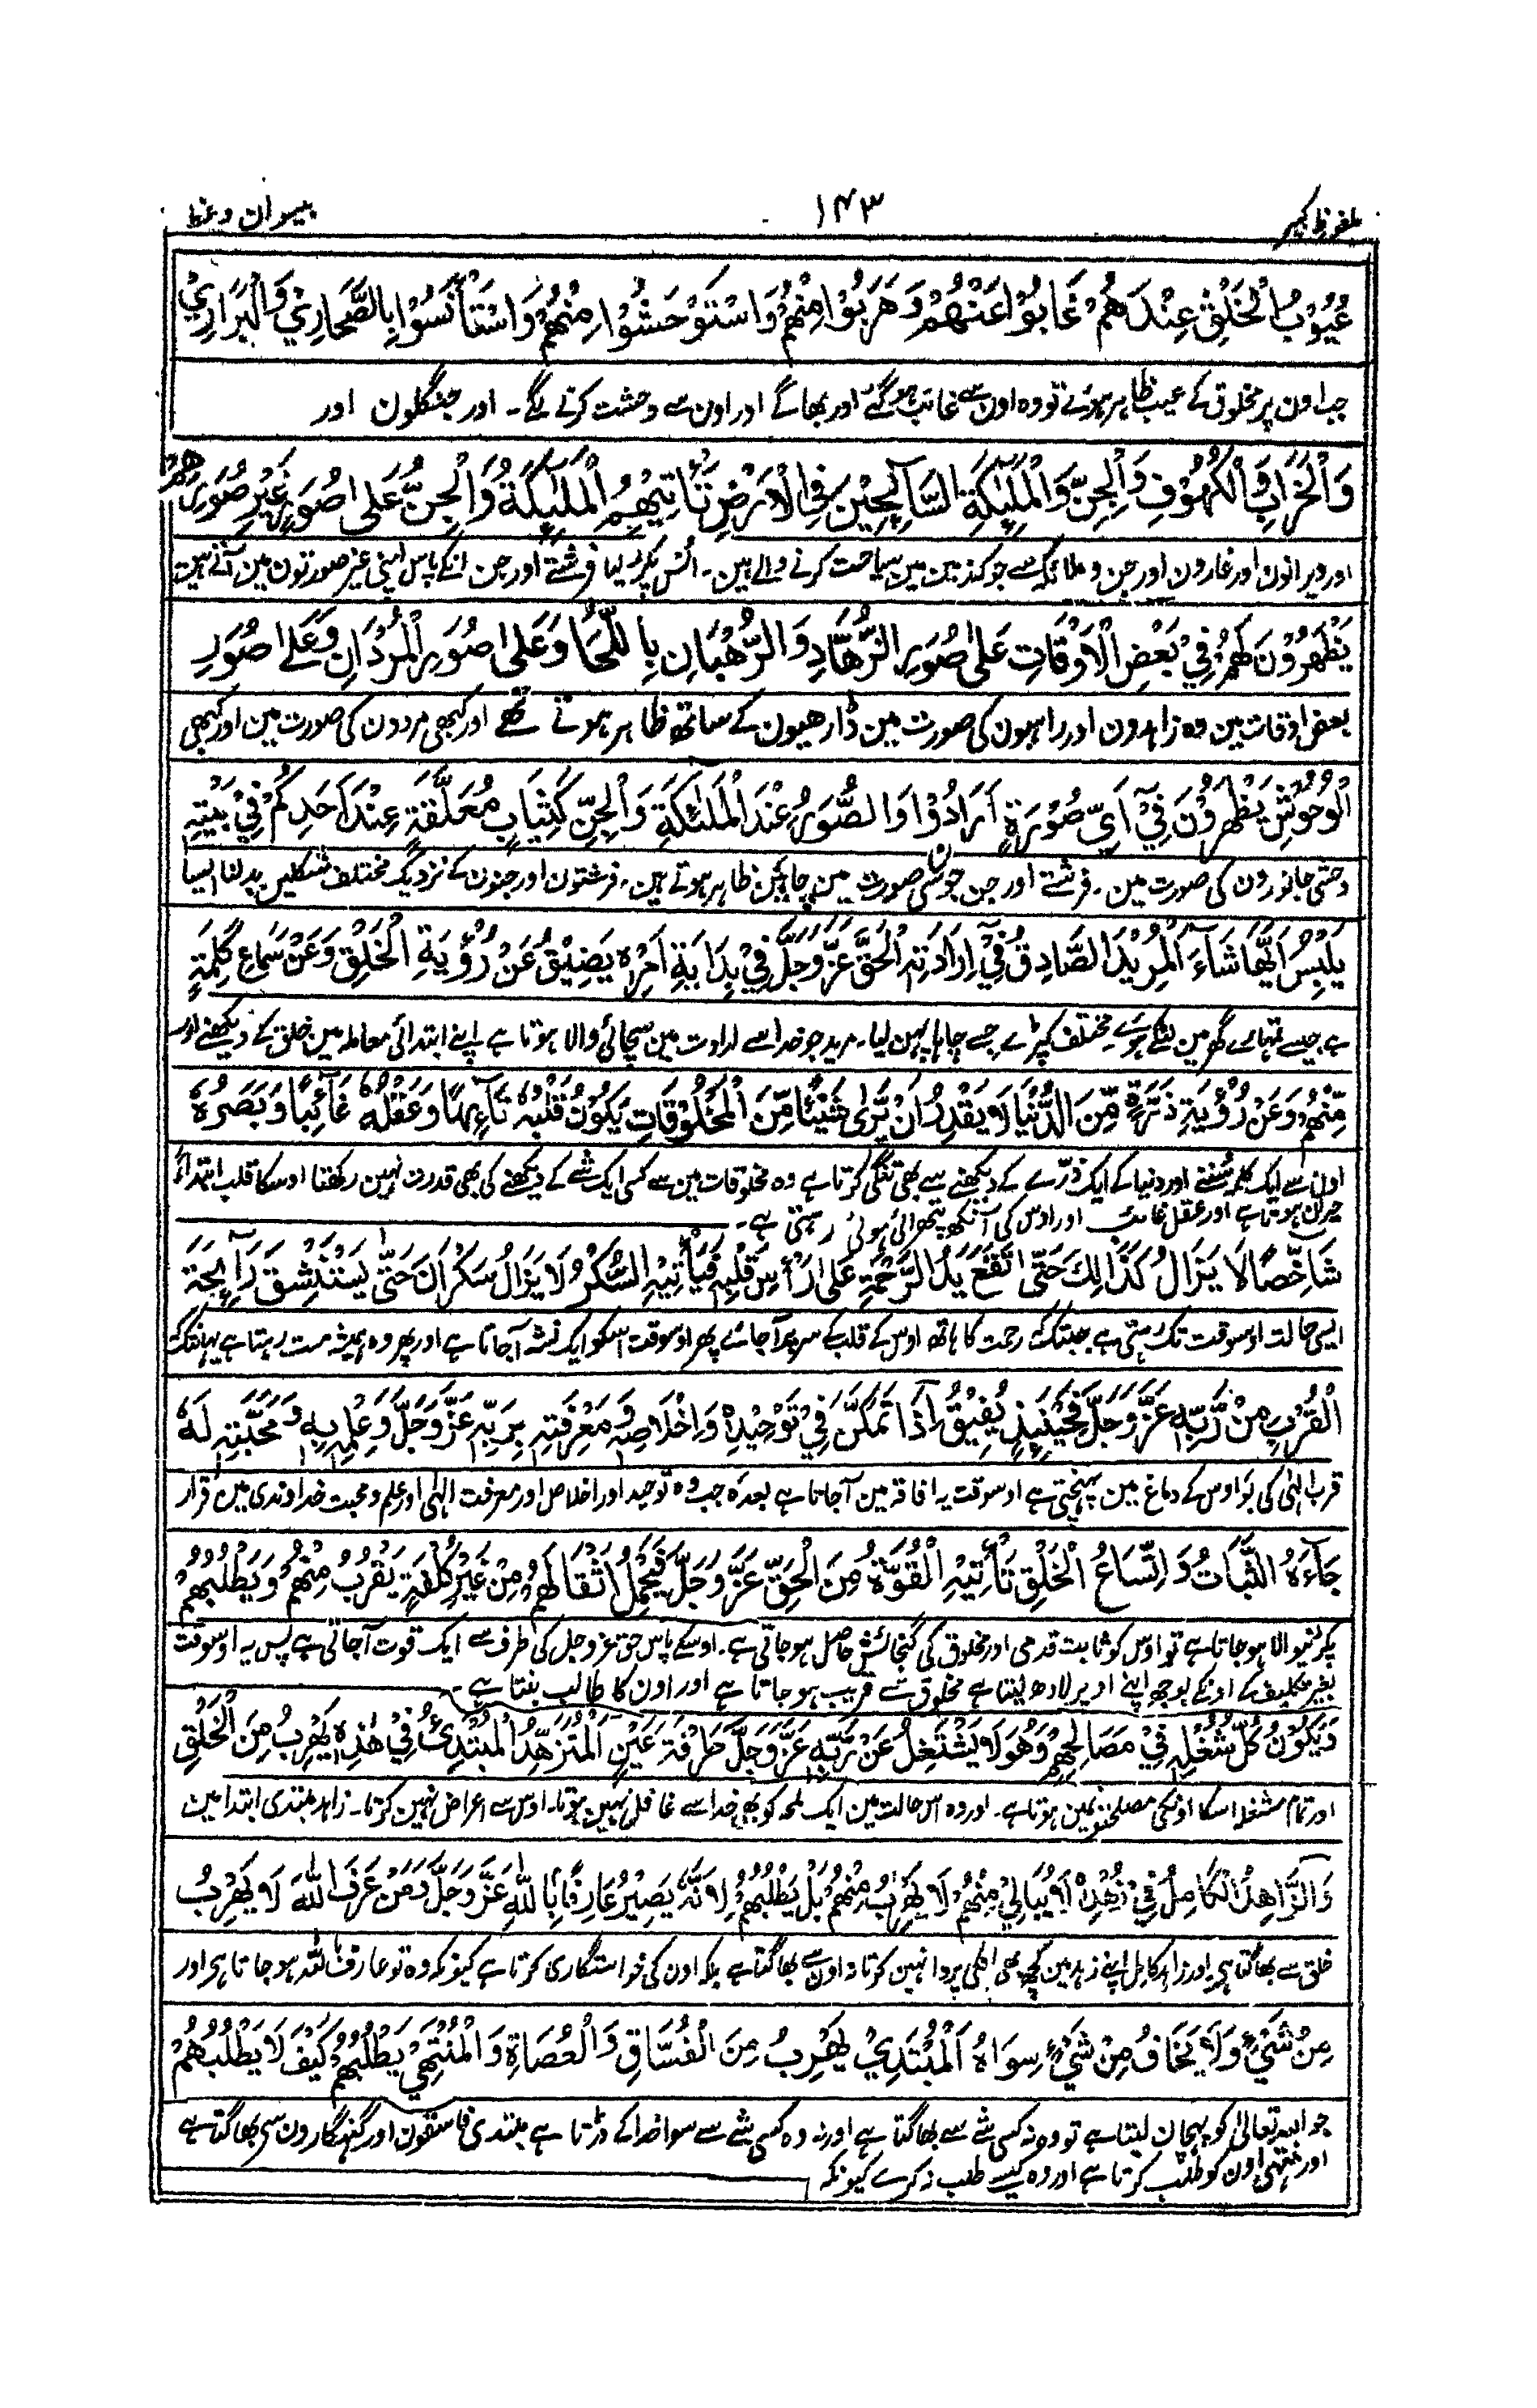 ملفوظ کبیر
۱۴۳
بیسوان وعظ
عُيُوْبُ الْخَلْقِ عِنْدَهُمْ غَابُوْا عَنْهُمْ وَهَرَبُوْا مِنْهُمْ وَاسْتَوْحَشُوْا مِنْهُمْ وَاسْتَأْنَسُوْا بِالصَّحَارِيْ وَالْبَرَارِيْ
جب اون پر مخلوق کے عیب ظاہر ہوئے تو وہ اون سے غائب ہوگئے اور بھاگے اور اون سے وحشت کرنے لگے۔ اور جنگلون اور
وَالْخَرَابِ وَالْكُهُوْفِ وَالْجِنِّ وَالْمَلٰٓئِكَةِ السَّآئِحِيْنَ فِي الْاَرْضِ تَأْتِيْهِمُ الْمَلٰٓئِكَةُ وَالْجِنُّ عَلٰى صُوَرٍ غَيْرِ صُوَرِهِمْ
اور ویرانون اور غارون اور جن و ملائکہ سے جو کہ زمین مین سیاحت کرنے والے ہین۔ اُنس پکڑ لیا فرشتے اور جن انکے پاس اپنی غیر صورتون مین آتے ہین
يَظْهَرُوْنَ لَهُمْ فِيْ بَعْضِ الْاَوْقَاتِ عَلٰى صُوَرِ الزُّهَّادِ وَالرُّهْبَانِ بِاللِّحَا وَعَلٰى صُوَرِ الْمُرْدَانِ وَعَلٰى صُوَرِ
بعض اوقات مین وہ زاہدون اور راہبون کی صورت مین ڈارھیون کے ساتھ ظاہر ہوتے تھے اور کبھی مردون کی صورت مین اور کبھی
الْوُحُوْشِ يَظْهَرُوْنَ فِيْٓ اَيِّ صُوْرَةٍ اَرَادُوْا وَالصُّوَرُ عِنْدَ الْمَلٰئِكَةِ وَالْجِنِّ كَثِيَابٍ مُعَلَّقَةٍ عِنْدَ اَحَدِكُمْ فِيْ بَيْتِهٖ
وحشی جانورون کی صورت مین۔ فرشتے اور جن جونسی صورت مین چاہین ظاہر ہوتے ہین۔ فرشتون اور جنون کے نزدیک مختلف شکلین بدلنا ایسا
يَلْبَسُ اَيَّهَا شَآءَ الْمُرِيْدُ الصَّادِقُ فِيْٓ اِرَادَتِهِ الْحَقَّ عَزَّ وَجَلَّ فِيْ بِدَايَةِ اَمْرِهٖ يَضِيْقُ عَنْ رُؤْيَةِ الْخَلْقِ وَعَنْ سَمَاعِ كَلِمَةٍ
ہے جیسے تمہارے گھر مین لٹکے ہوئے مختلف کپڑے جسے چاہا پہن لیا۔ مرید جو خدا سے ارادت مین سچائی والا ہوتا ہے اپنے ابتدائی معاملہ مین خلق کے دیکھنے اور
مِّنْهُمْ وَعَنْ رُؤْيَةِ ذَرَّةٍ مِّنَ الدُّنْيَا لَا يَقْدِرُ اَنْ يَّرٰى شَيْئًا مِّنَ الْمَخْلُوْقَاتِ يَكُوْنُ قَلْبُهٗ تَآئِهًا وَعَقْلُهٗ غَآئِبًا وَبَصَرُهٗ
اون سے ایک کلمہ سننے اور دنیا کے ایک ذرّے کے دیکھنے سے بھی تنگی کرتا ہے وہ مخلوقات مین سے کسی ایک شے کے دیکھنے کی بھی قدرت نہین رکھتا اوسکا قلب ابتداءً
حیران ہوتا ہے اور عقل غائب اور اوس کی آنکھ پتھرائی ہوئی رہتی ہے۔
شَاخِصًا لَا يَزَالُ كَذٰلِكَ حَتّٰى تَقَعَ يَدُ الرَّحْمَةِ عَلٰى رَأْسِ قَلْبِهٖ فَيَأْتِيْهِ السُّكْرُ لَا يَزَالُ سَكْرَانَ حَتّٰى يَسْتَنْشِقَ رَآئِحَةَ
ایسی حالت اوسوقت تک رہتی ہے جبتک کہ رحمت کا ہاتھ اوس کے قلب کے سر پر آجائے پھر اوسوقت اسکو ایک نشہ آجاتا ہے اور پھر وہ ہمیشہ مست رہتا ہے یہانتک کہ
الْقُرْبِ مِنْ رَّبِّهٖ عَزَّ وَجَلَّ فَحِيْنَئِذٍ يُفِيْقُ اِذَا تَمَكَّنَ فِيْ تَوْحِيْدِهٖ وَاِخْلَاصِهٖ وَمَعْرِفَتِهٖ بِرَبِّهٖ عَزَّ وَجَلَّ وَعِلْمِهٖ بِهٖ وَمَحَبَّتِهٖ لَهٗ
قرب الٰہی کی بو اوس کے دماغ مین پہنچتی ہے اوسوقت یہ افاقہ مین آجاتا ہے بعدہ جب وہ توحید اور اخلاص اور معرفت الٰہی اور علم و محبت خداوندی مین قرار
جَآءَهُ الثَّبَاتُ وَاتِّسَاعُ الْخَلْقِ تَأْتِيْهِ الْقُوَّةُ مِنَ الْحَقِّ عَزَّ وَجَلَّ فَيَحْمِلُ اَثْقَالَهُمْ مِنْ غَيْرِ كُلْفَةٍ يَقْرُبُ مِنْهُمْ وَيَطْلُبُهُمْ
پکڑنیوالا ہوجاتا ہے تو اوس کو ثابت قدمی اور مخلوق کی گنجائش حاصل ہوجاتی ہے۔ اوسکے پاس حق عزوجل کی طرف سے ایک قوت آجاتی ہے پس یہ اوسوقت
بغیر تکلیف کے اونکے بوجھ اپنے اوپر لادھ لیتا ہے مخلوق سے قریب ہوجاتا ہے اور اون کا طالب بنتا ہے۔
وَيَكُوْنُ كُلُّ شُغْلِهٖ فِيْ مَصَالِحِهِمْ وَهُوَ لَا يَشْتَغِلُ عَنْ رَّبِّهٖ عَزَّ وَجَلَّ طَرْفَةَ عَيْنٍ الْمُتَزَهِّدُ الْمُبْتَدِئُ فِيْ هٰذِهٖ يَهْرُبُ مِنَ الْخَلْقِ
اور تمام مشغلہ اسکا اونکی مصلحتونمین ہوتا ہے۔ اور وہ اس حالت مین ایک لمحہ کو بھی خدا سے غافل نہین ہوتا۔ اوس سے اعراض نہین کرتا۔ زاہد مبتدی ابتدا مین
وَالزَّاهِدُ الْكَامِلُ فِيْ زُهْدِهٖ لَا يُبَالِيْ مِنْهُمْ لَا يَهْرُبُ مِنْهُمْ بَلْ يَطْلُبُهُمْ لِاَنَّهٗ يَصِيْرُ عَارِفًا بِاللّٰهِ عَزَّ وَجَلَّ وَمَنْ عَرَفَ اللّٰهَ لَا يَهْرُبُ
خلق سے بھاگتا ہے اور زاہد کامل اپنے زہد مین کچھ بھی انکی پروا نہین کرتا نہ اون سے بھاگتا ہے بلکہ اون کی خواستگاری کرتا ہے کیونکہ وہ تو عارف اللہ ہوجاتا ہے اور
مِنْ شَيْءٍ وَلَا يَخَافُ مِنْ شَيْءٍ سِوَاهُ اَلْمُبْتَدِيْ يَهْرُبُ مِنَ الْفُسَّاقِ وَالْعُصَاةِ وَالْمُنْتَهِيْ يَطْلُبُهُمْ كَيْفَ لَا يَطْلُبُهُمْ
جو اللہ تعالیٰ کو پہچان لیتا ہے تو وہ نہ کسی شے سے بھاگتا ہے اور نہ وہ کسی شے سے سوا خدا کے ڈرتا ہے مبتدی فاسقون اور گنہگارون سے بھاگتا ہے
اور منتہی اون کو طلب کرتا ہے اور وہ کیسے طلب نہ کرے کیونکہ